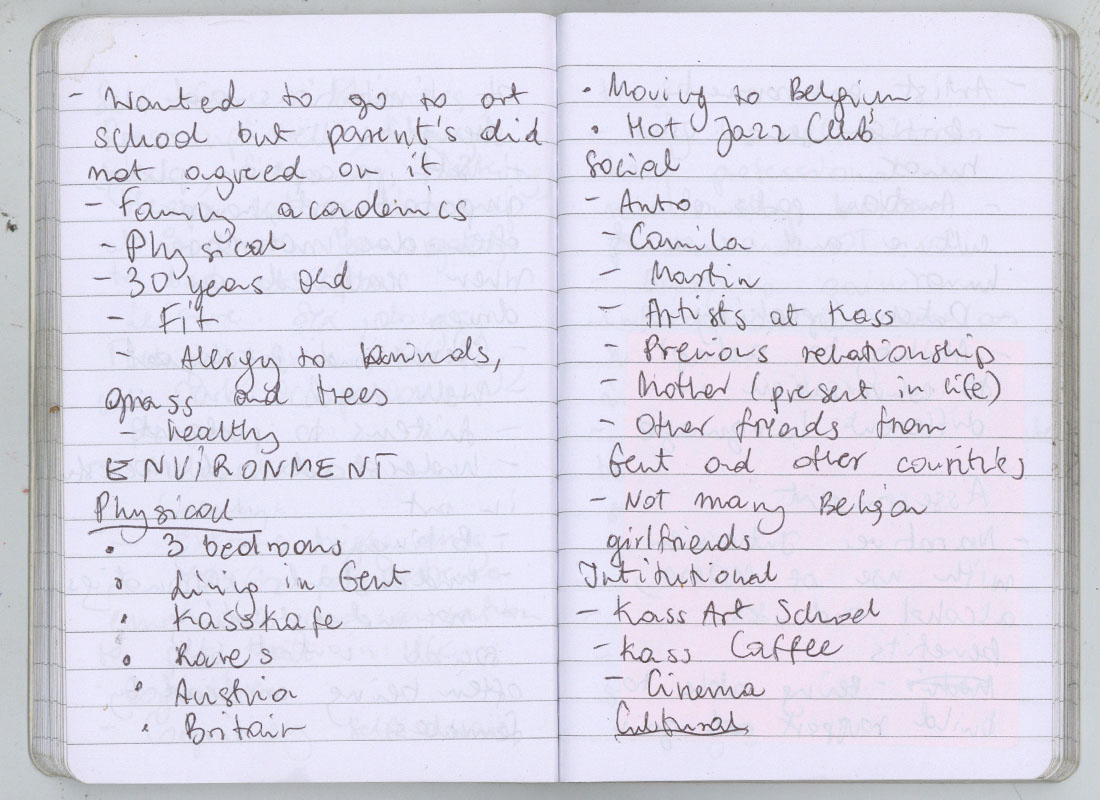 - Wanted to go to art
school but parent's did
not agreed on it
- Family academics
- Physical
- 30 years old
- Fit
- Alergy to animals,
grass and trees
- healthy
ENVIRONMENT
Physical
• 3 bedrooms
• Living in Gent
• Kasskafe
• Rave's
• Austria
• Britain
• Moving to Belgium
• Hot Jazz Club's
Social
- Anto
- Camila
- Martin
- Artists at Kass
- Previous relationship
- Mother (present in life)
- Other friends from
Gent and other countries
- Not many Belgian
girlfriends
Intitutional
- Kass Art School
- Kass Caffee
- Cinema
Cultural